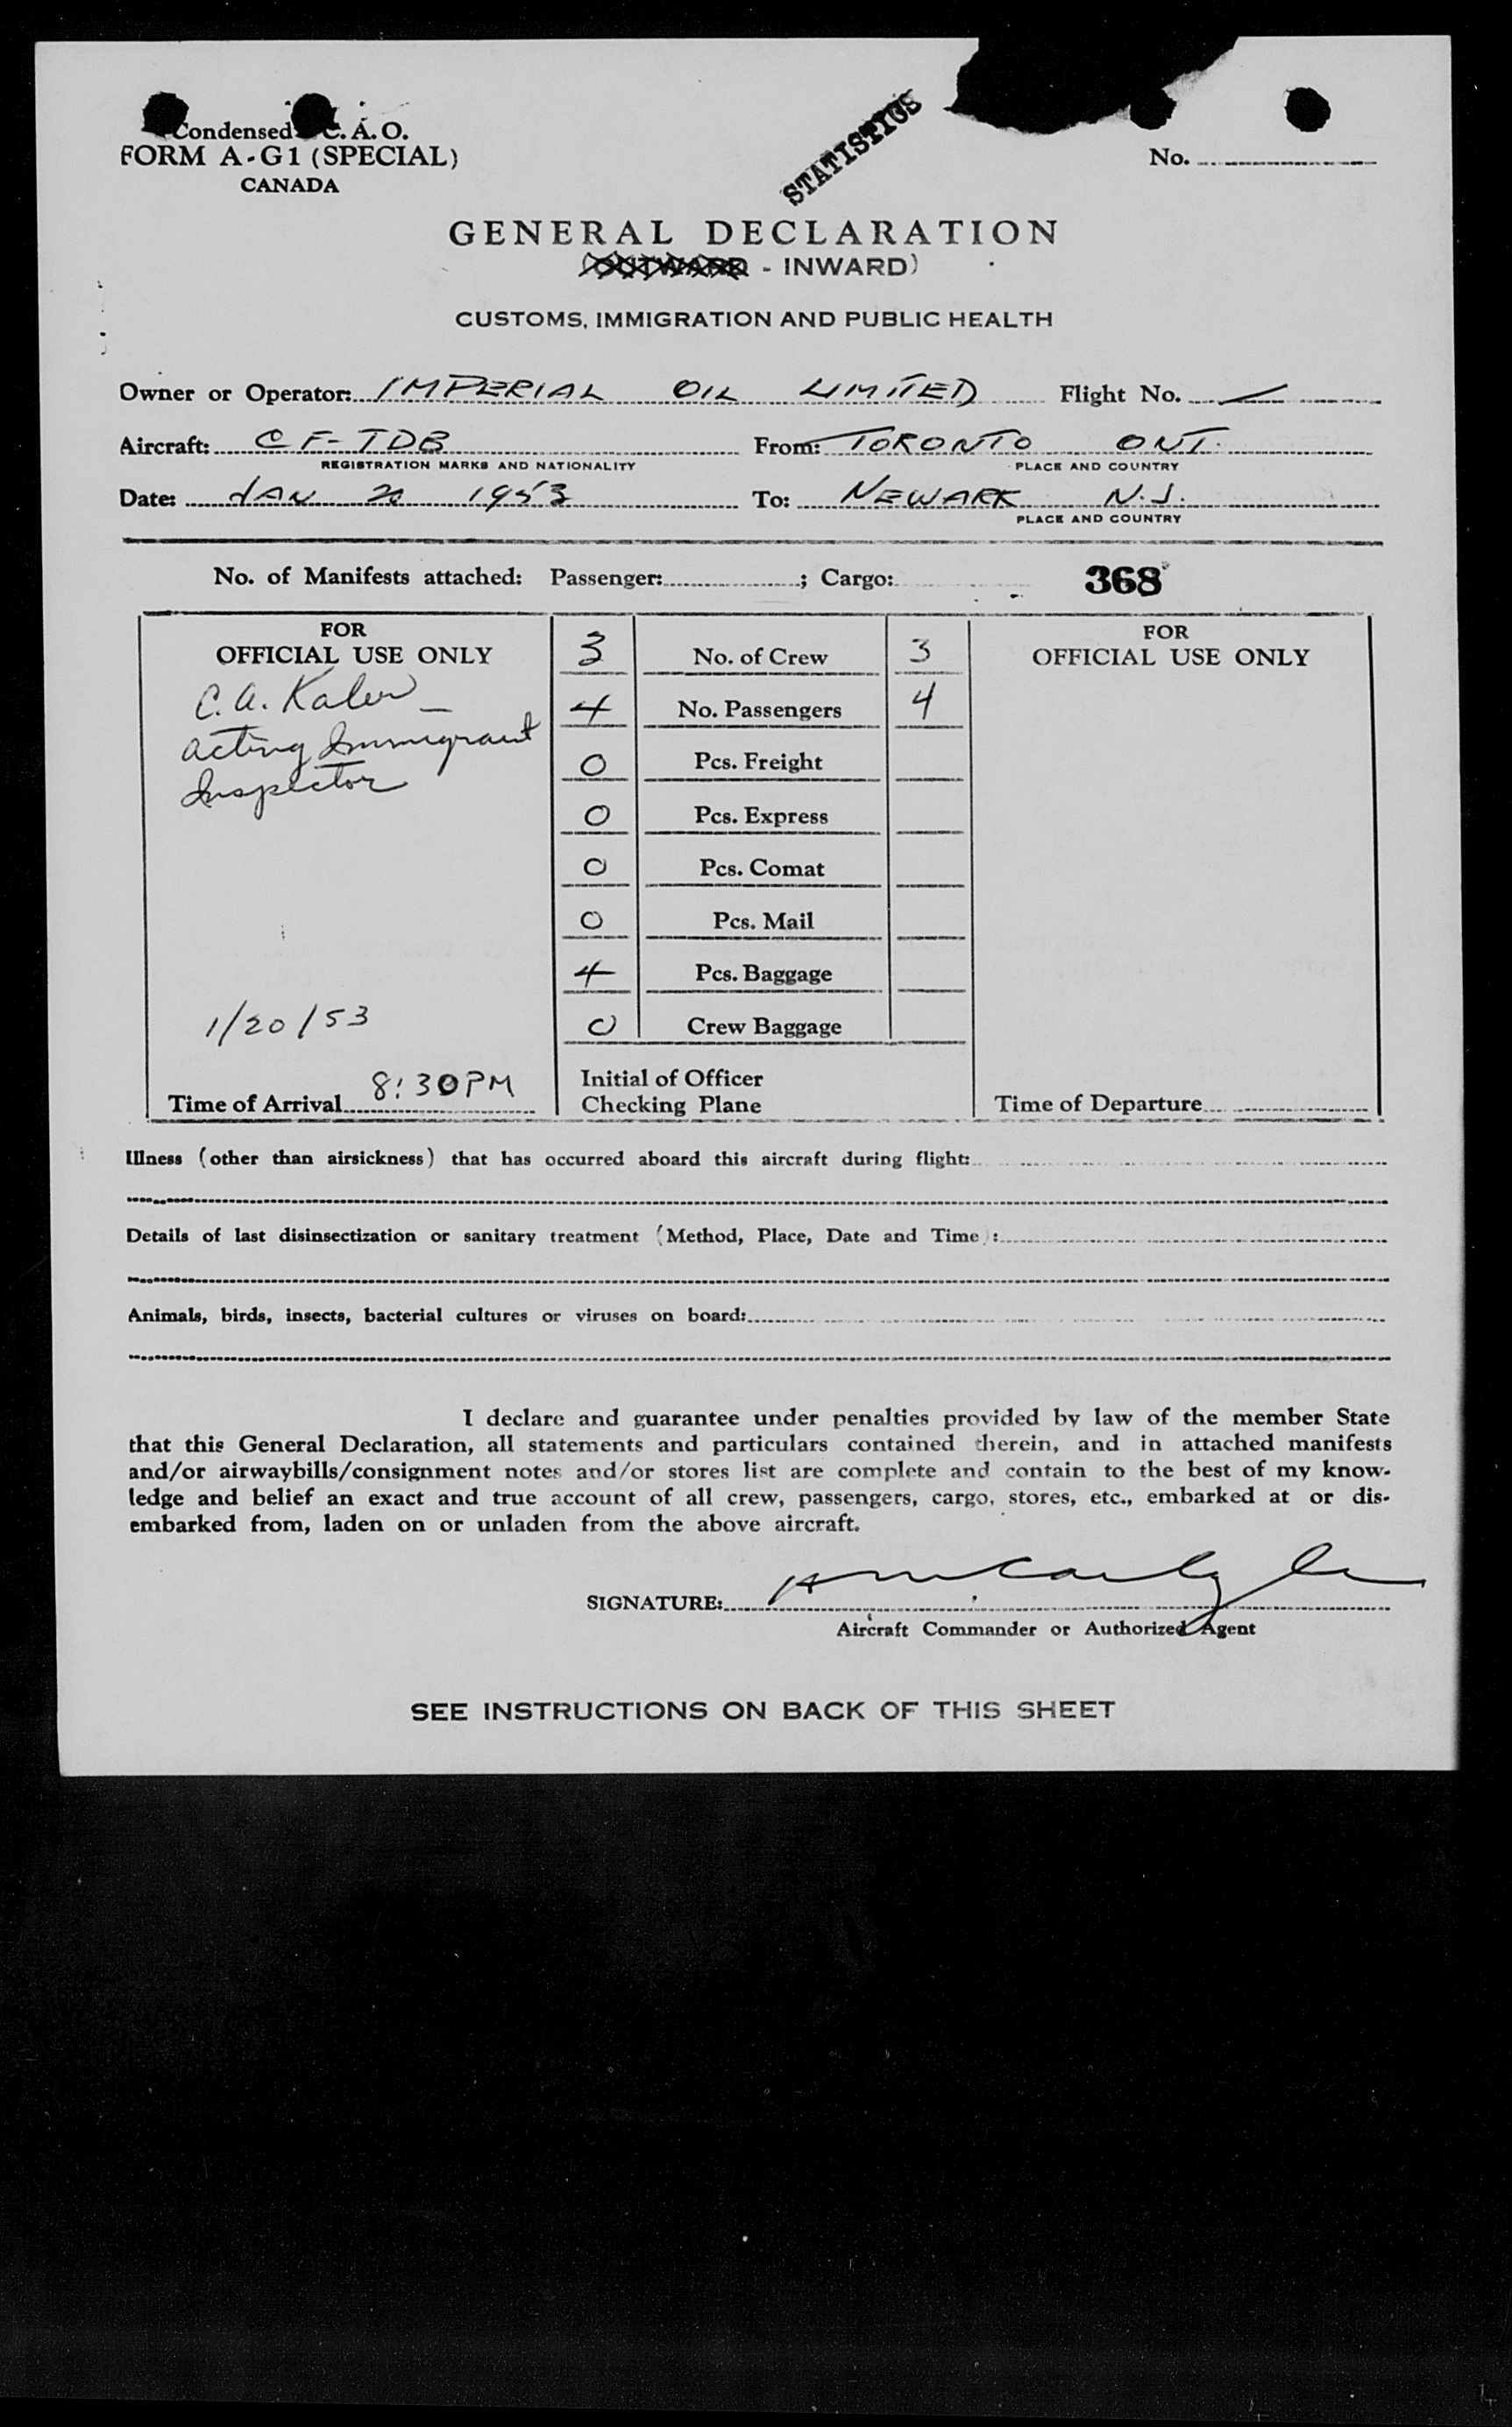 Condensed C. A. O.
FORM A-G1 (SPECIAL)
CANADA
STATISTICS
No.
GENERAL DECLARATION
(OUTWARD - INWARD)
CUSTOMS, IMMIGRATION AND PUBLIC HEALTH
Owner or Operator: IMPERIAL OIL LIMITED Flight No.
Aircraft: CF-TDB From: TORONTO ONT.
REGISTRATION MARKS AND NATIONALITY PLACE AND COUNTRY
Date: JAN 20 1953 To: NEWARK N.J.
PLACE AND COUNTRY
No. of Manifests attached: Passenger: ; Cargo: 368
FOR
OFFICIAL USE ONLY
C. A. Kaler
Acting Immigrant
Inspector
1/20/53
Time of Arrival 8:30PM
3 No. of Crew 3
4 No. Passengers 4
0 Pcs. Freight
0 Pcs. Express
0 Pcs. Comat
0 Pcs. Mail
4 Pcs. Baggage
0 Crew Baggage
Initial of Officer
Checking Plane
FOR
OFFICIAL USE ONLY
Time of Departure
Illness (other than airsickness) that has occurred aboard this aircraft during flight:
Details of last disinsectization or sanitary treatment (Method, Place, Date and Time):
Animals, birds, insects, bacterial cultures or viruses on board:
I declare and guarantee under penalties provided by law of the member State
that this General Declaration, all statements and particulars contained therein, and in attached manifests
and/or airwaybills/consignment notes and/or stores list are complete and contain to the best of my know-
ledge and belief an exact and true account of all crew, passengers, cargo, stores, etc., embarked at or dis-
embarked from, laden on or unladen from the above aircraft.
SIGNATURE:
Aircraft Commander or Authorized Agent
SEE INSTRUCTIONS ON BACK OF THIS SHEET